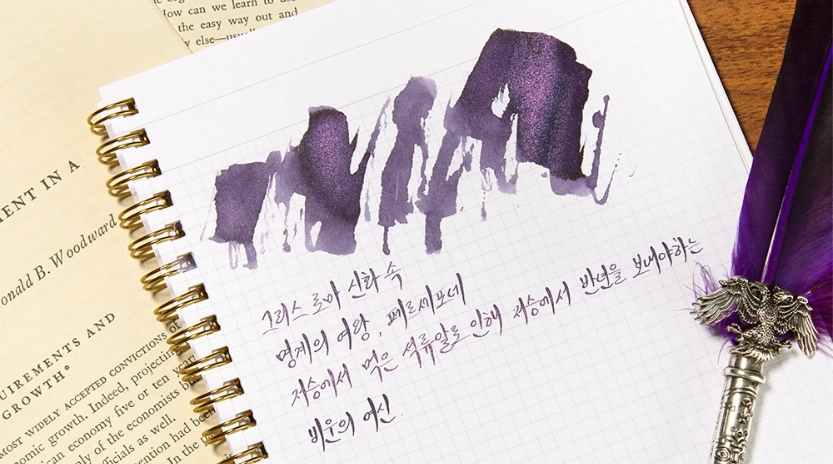 How can we learn to use
the easy way out and
else—
MENT IN A
onald B. Woodward
UIREMENTS AND
GROWTH
MOST WIDELY ACCEPTED CONVICTIONS OF
onomic growth. Indeed, projecting
ican economy five or ten years
ly of the economists
ficials as well.
vention had been
In the
그리스 로마 신화 속
명계의 여왕, 페르세포네
저승에서 먹은 석류알로 인해 저승에서 반년을 보내야하는
비운의 여신.